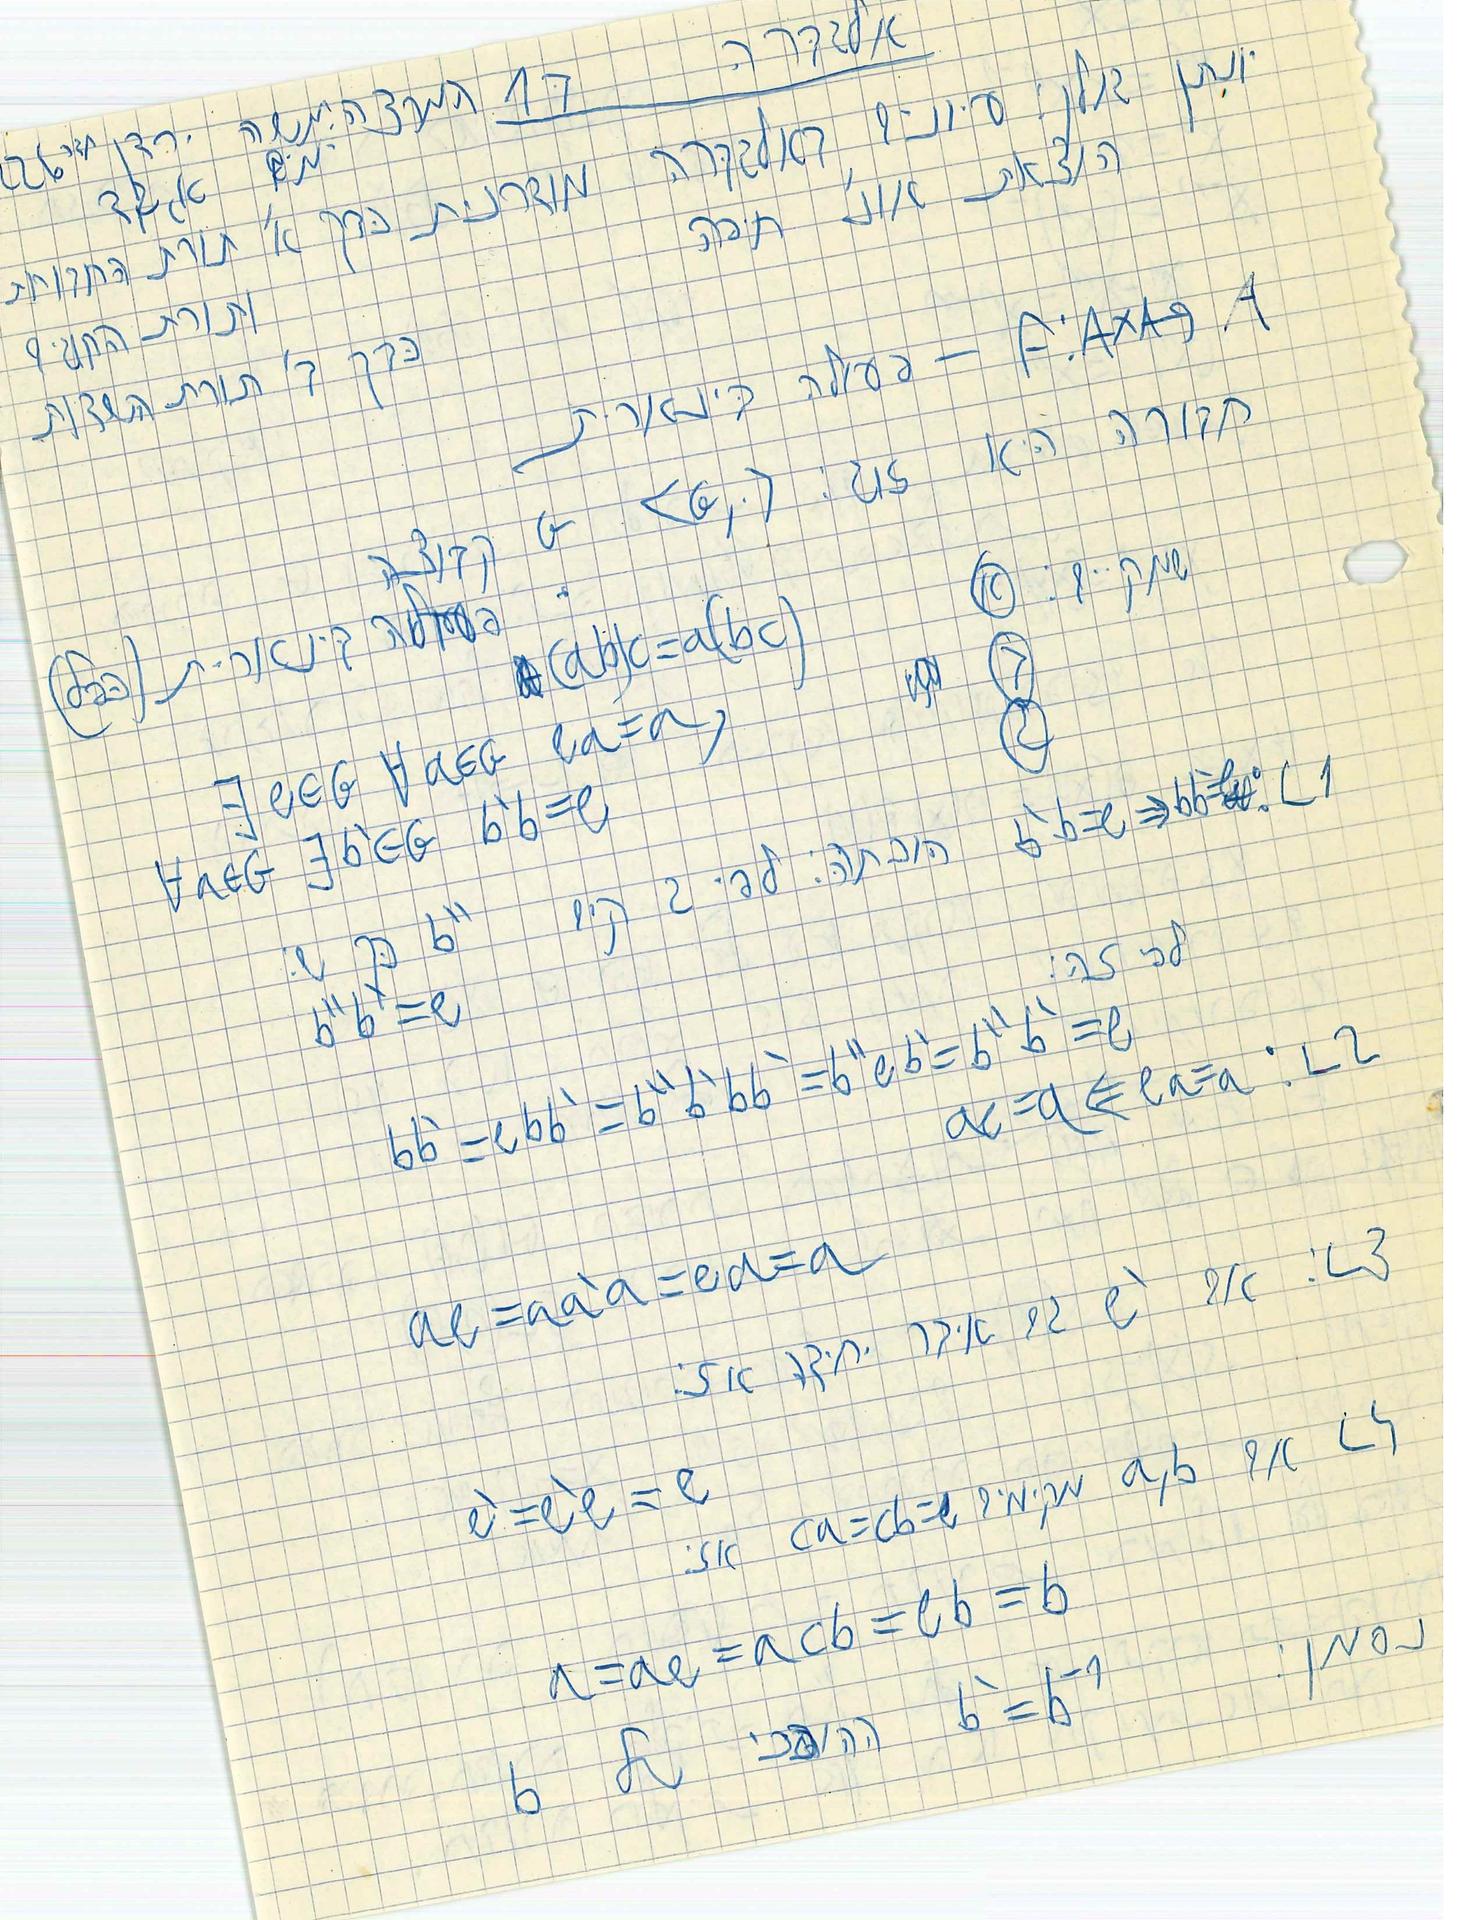 אלגברה ב1 המרצה: משה ירדן חדר 226
ימים א,ג,ד
יונתן גולן: עיונים באלגברה מודרנית כרך א' תורת החבורות
הוצאת אונ' חיפה
ותורת החוגים
כרך ב' תורת השדות
F: A×A→A – פעולה בינארית
חבורה היא זוג: <G,·> G קבוצה
· פעולה בינארית (הכפל)
שמקיים: א (ab)c=a(bc)
ב ∃e∈G ∀a∈G ea=a,
ג ∀a∈G ∃b`∈G b`b=e
L1: bb`=e ⇐ b`b=e הוכחה: לפי ג קיים b`` כך ש:
b``b`=e
לפי זה:
bb`=ebb`=b``b`bb`=b``eb`=b``b`=e
L2: ae=a ⇐ ea=a
ae=aa`a=ea=a
L3: אם e` גם איבר יחידה אז:
e`=e`e=e
L4 אם a,b מקיימים ca=cb=e אז:
a=ae=acb=eb=b
נסמן: b`=b⁻¹ ההופכי של b